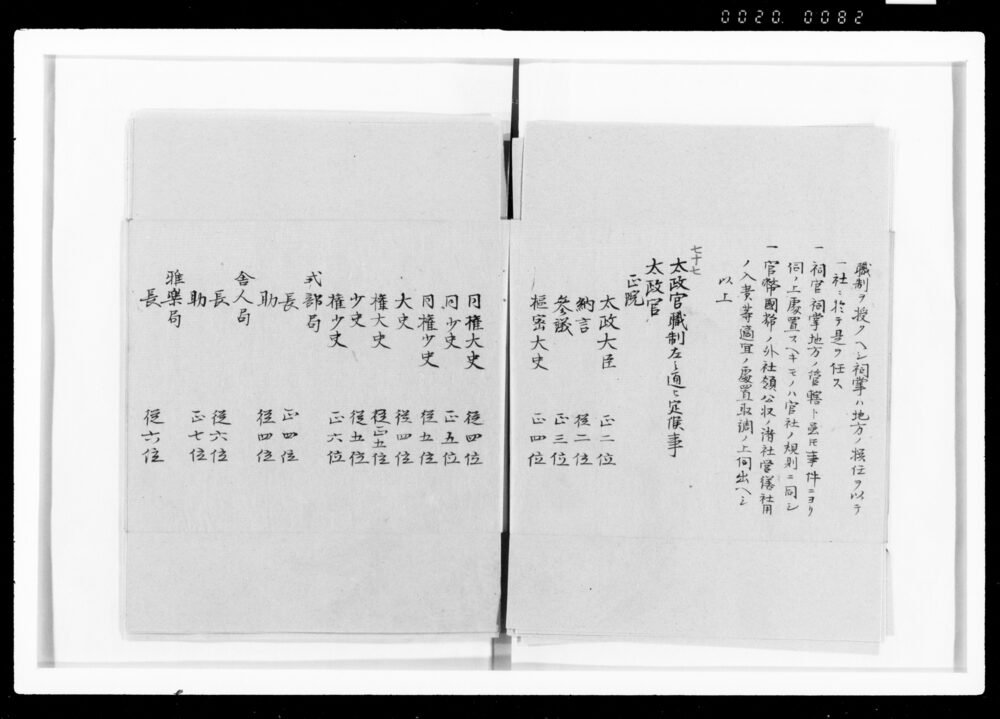 0020 0082
職制ヲ授クヘシ祠掌ハ地方ノ撰任ヲ以テ
一社ニ於テ是ヲ任ス
一祠官祠掌地方ノ管轄ト虽モ事件ニヨリ
伺ノ上處置スヘキモノハ官社ノ規則ニ同シ
一官幣國幣ノ外社領公収ノ諸社営繕社用
ノ入費等適宜ノ處置取調ノ上伺出ヘシ
以上
七十七
太政官職制左之通ニ定候事
太政官
正院
太政大臣 正二位
納言 従二位
参議 正三位
枢密大史 正四位
同権大史 従四位
同少史 正五位
同権少史 従五位
大史 従四位
権大史 正五位
少史 従五位
権少史 正六位
式部局
長 正四位
助 従四位
舎人局
長 従六位
助 正七位
雅楽局
長 従六位